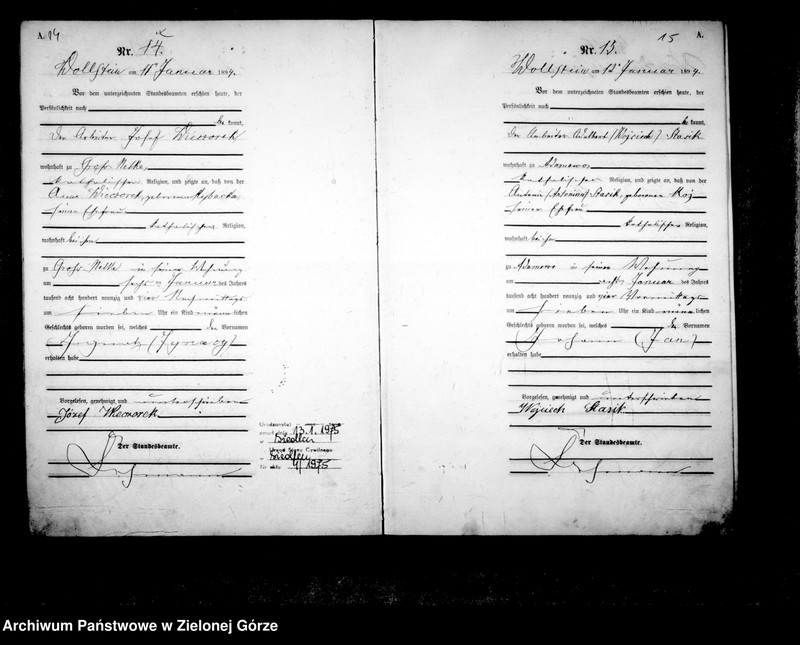 A. 14
Nr. 14.
Wollstein am 11 Januar 1894.
Vor dem unterzeichneten Standesbeamten erschien heute, der
Persönlichkeit nach
be kannt,
Der Arbeiter Josef Wieczorek
wohnhaft zu Groß Nelke,
katholischer Religion, und zeigte an, daß von der
Anna Wieczorek, geborenen Rybacka,
seine Ehefrau
katholischer Religion,
wohnhaft bei ihm
zu Groß Nelke in seiner Wohnung
am Januar des Jahres
tausend acht hundert neunzig und vier Nachmittags
um sieben Uhr ein Kind männlichen
Geschlechts geboren worden sei, welches den Vornamen
Ignatz (Ignacy)
erhalten habe
Vorgelesen, genehmigt und unterschrieben
Józef Wieczorek
Der Standesbeamte.
13.I.1975
Siedlec
Urząd Stanu Cywilnego
Siedlec
Nr aktu 4/1975
15 A.
Nr. 15.
Wollstein am 12 Januar 1894.
Vor dem unterzeichneten Standesbeamten erschien heute, der
Persönlichkeit nach
be kannt,
Der Arbeiter Adalbert (Wojciech) Stasik
wohnhaft zu Adamowo,
katholischer Religion, und zeigte an, daß von der
Antonie (Antonina) Stasik, geborenen Koj
seiner Ehefrau
katholischer Religion,
wohnhaft bei ihm
zu Adamowo in seiner Wohnung
am Januar des Jahres
tausend acht hundert neunzig und vier Vormittags
um sieben Uhr ein Kind männlichen
Geschlechts geboren worden sei, welches den Vornamen
Johann (Jan)
erhalten habe
Vorgelesen, genehmigt und unterschrieben
Wojciech Stasik
Der Standesbeamte.
Archiwum Państwowe w Zielonej Górze